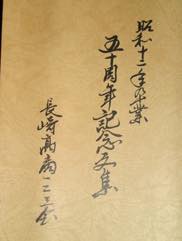 昭和十二年卒業
五十周年記念文集
長崎高商一二三会